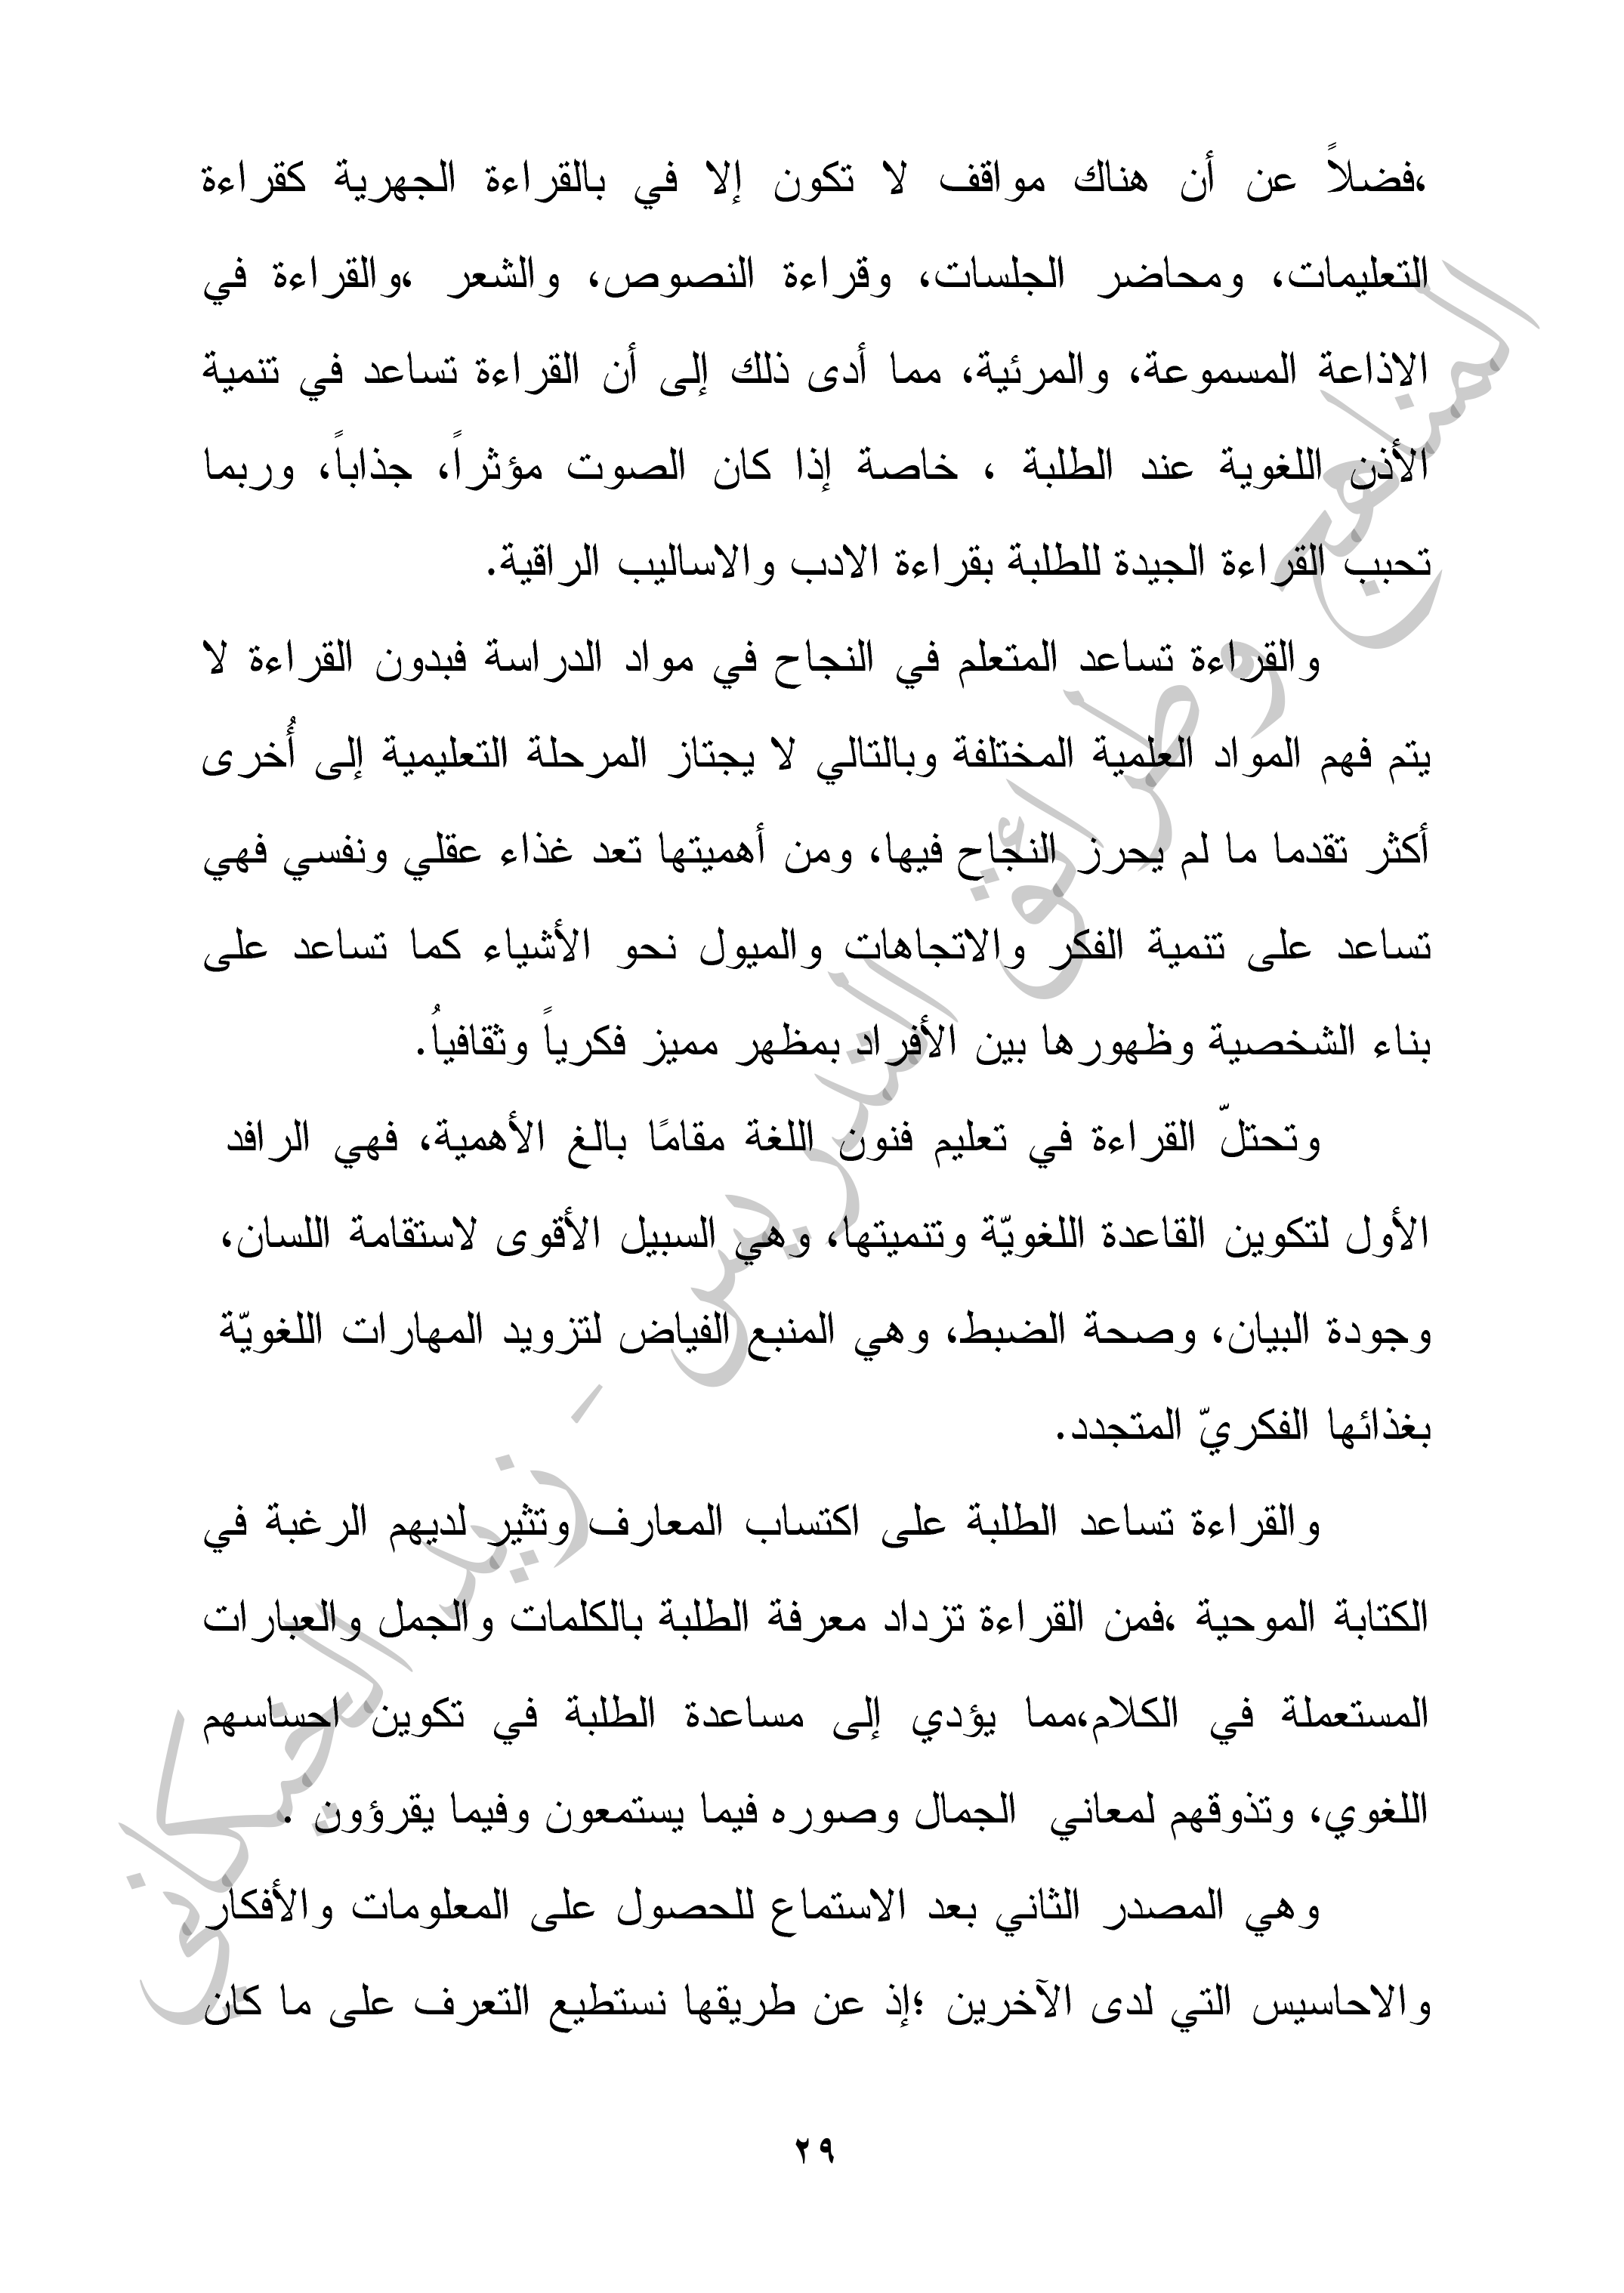 ،فضلاً عن أن هناك مواقف لا تكون إلا في بالقراءة الجهرية كقراءة
التعليمات، ومحاضر الجلسات، وقراءة النصوص، والشعر ،والقراءة في
الاذاعة المسموعة، والمرئية، مما أدى ذلك إلى أن القراءة تساعد في تنمية
الأذن اللغوية عند الطلبة ، خاصة إذا كان الصوت مؤثراً، جذاباً، وربما
تحبب القراءة الجيدة للطلبة بقراءة الادب والاساليب الراقية.
والقراءة تساعد المتعلم في النجاح في مواد الدراسة فبدون القراءة لا
يتم فهم المواد العلمية المختلفة وبالتالي لا يجتاز المرحلة التعليمية إلى أُخرى
أكثر تقدما ما لم يحرز النجاح فيها، ومن أهميتها تعد غذاء عقلي ونفسي فهي
تساعد على تنمية الفكر والاتجاهات والميول نحو الأشياء كما تساعد على
بناء الشخصية وظهورها بين الأفراد بمظهر مميز فكرياً وثقافياُ.
وتحتلّ القراءة في تعليم فنون اللغة مقامًا بالغ الأهمية، فهي الرافد
الأول لتكوين القاعدة اللغويّة وتنميتها، وهي السبيل الأقوى لاستقامة اللسان،
وجودة البيان، وصحة الضبط، وهي المنبع الفياض لتزويد المهارات اللغويّة
بغذائها الفكريّ المتجدد.
والقراءة تساعد الطلبة على اكتساب المعارف وتثير لديهم الرغبة في
الكتابة الموحية ،فمن القراءة تزداد معرفة الطلبة بالكلمات والجمل والعبارات
المستعملة في الكلام،مما يؤدي إلى مساعدة الطلبة في تكوين احساسهم
اللغوي، وتذوقهم لمعاني الجمال وصوره فيما يستمعون وفيما يقرؤون .
وهي المصدر الثاني بعد الاستماع للحصول على المعلومات والأفكار
والاحاسيس التي لدى الآخرين ؛إذ عن طريقها نستطيع التعرف على ما كان
٢٩
المناهج وطرائق التدريس - زيد الخيكاني